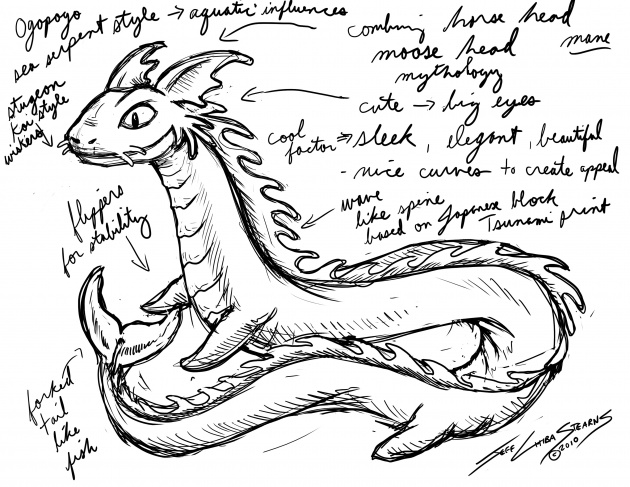 Ogopogo
sea serpent style → aquatic influences
combining horse head
moose head
mane
mythology
sturgeon
koi style
wiskers
cute → big eyes
cool
factor ⇒ sleek, elegant, beautiful
- nice curves to create appeal
wave
like spine
based on Japanese block
Tsunami print
flippers
for stability
forked
tail
like
fish
Jeff Chiba Stearns
© 2010